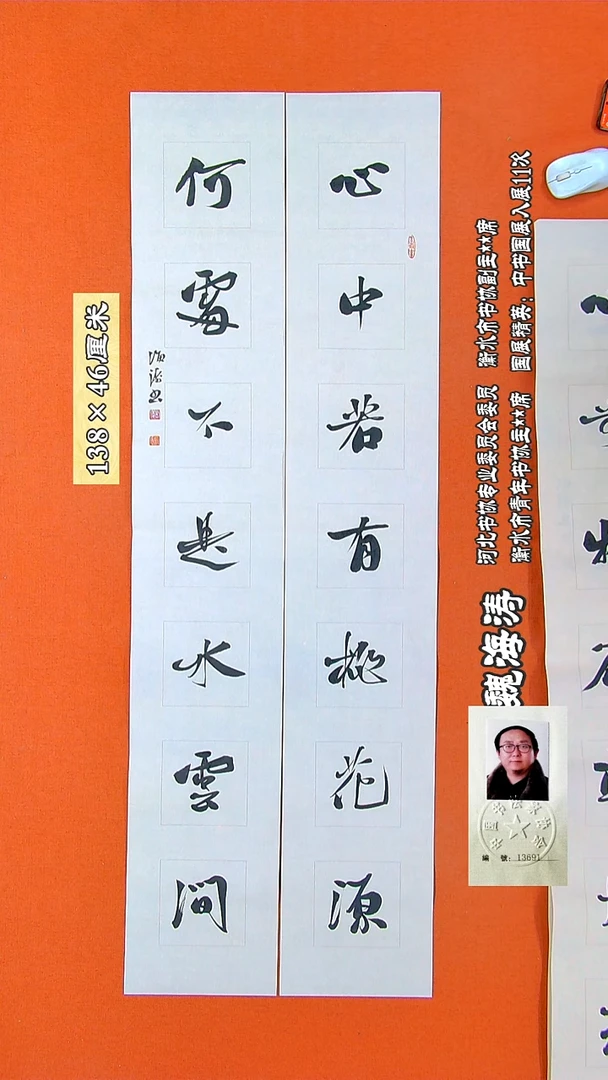 心中若有桃花源
何處不是水雲澗
海濤書
138×46厘米
魏海涛
河北书协专业委员会委员 衡水市书协副主**席
衡水市青年书协主**席 国展精英：中书国展入展11次
編 號：13691